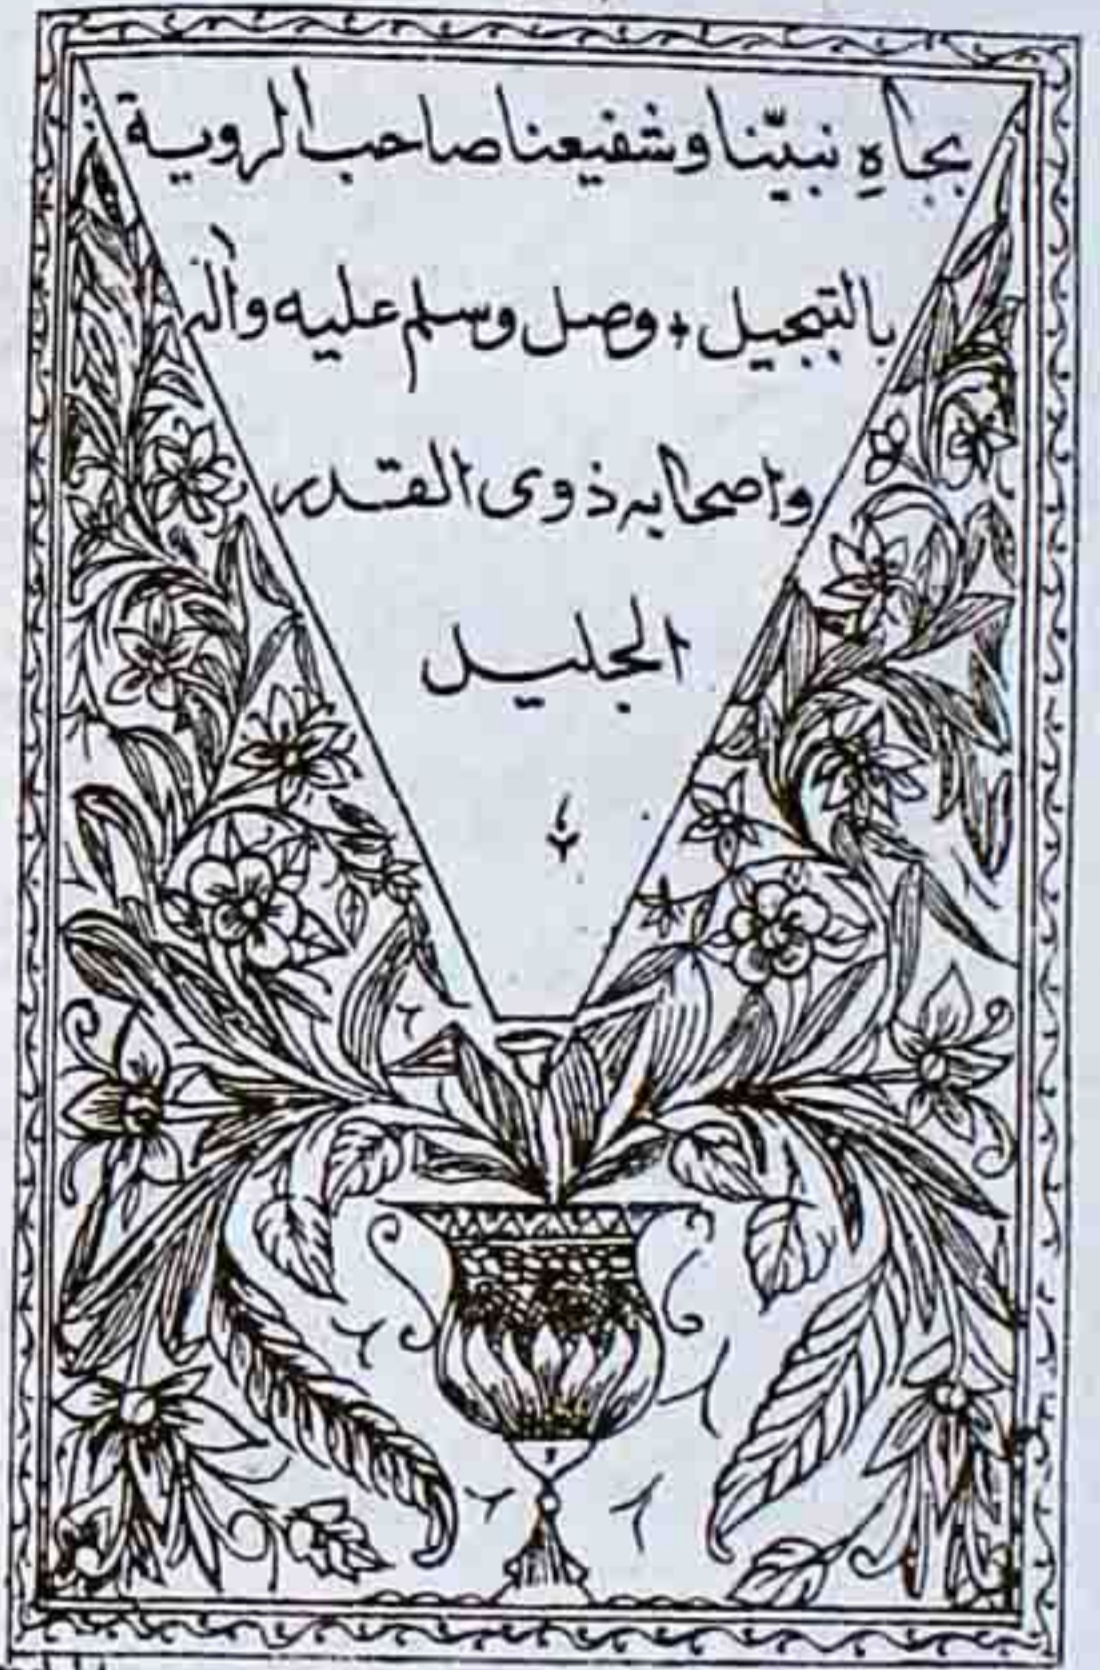 بجاهِ نبيّنا وشفيعنا صاحب الروية
بالتبجيل + وصل وسلم عليه وآله
واصحابه ذوى القدر
الجليل